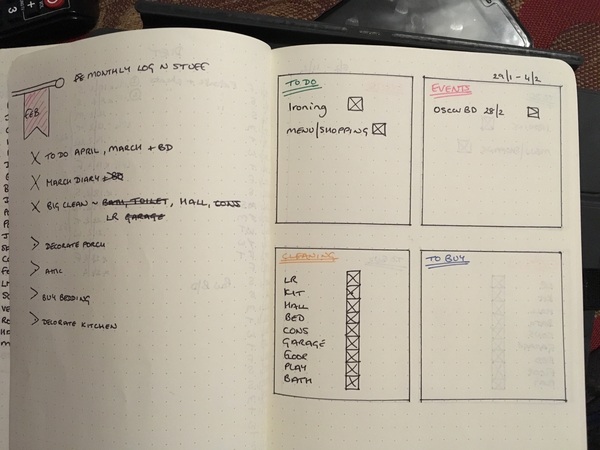 MONTHLY LOG N STUFF
FEB
X TO DO APRIL, MARCH + BD
X MARCH DIARY + BD
X BIG CLEAN ~ BATH, TOILET, HALL, CONS
LR GARAGE
> DECORATE PORCH
> ATTIC
> BUY BEDDING
> DECORATE KITCHEN
29/1 - 4/2
TO DO
Ironing
MENU/SHOPPING
EVENTS
OSCAR BD 28/2
CLEANING
LR
KIT
HALL
BED
CONS
GARAGE
FLOOR
PLAY
BATH
TO BUY